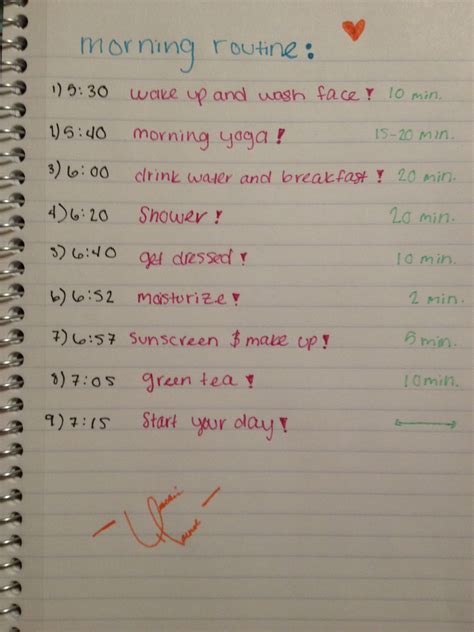 morning routine:
1) 5:30 wake up and wash face! 10 min.
2) 5:40 morning yoga! 15-20 min.
3) 6:00 drink water and breakfast! 20 min.
4) 6:20 Shower! 20 min.
5) 6:40 get dressed! 10 min.
6) 6:52 moisturize! 2 min.
7) 6:57 sunscreen & make up! 5 min.
8) 7:05 green tea! 10 min.
9) 7:15 Start your day!